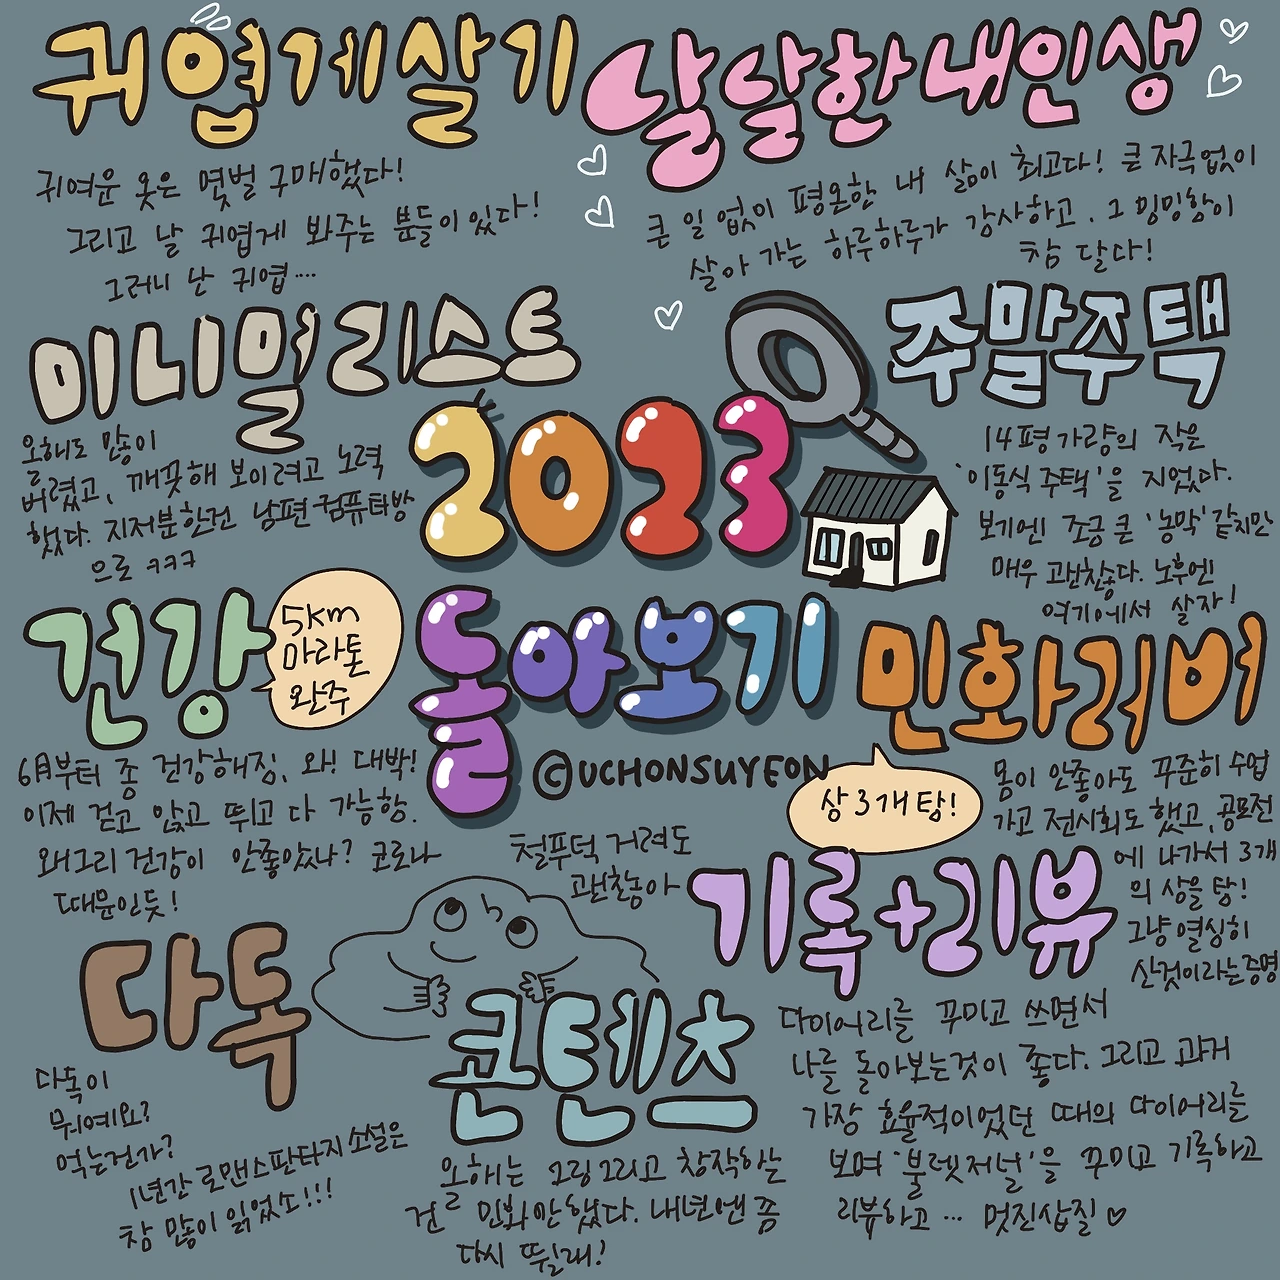 귀엽게살기
귀여운 옷은 몇벌 구매했다!
그리고 날 귀엽게 봐주는 분들이 있다!
그러니 난 귀엽....
달달한내인생
큰 일 없이 평온한 내 삶이 최고다! 큰 자극없이
살아 가는 하루하루가 감사하고. 그 밍밍함이
참 달다!
미니멀리스트
올해도 많이
버렸고, 깨끗해 보이려고 노력
했다. 지저분한건 남편컴퓨터방
으로 ㅋㅋㅋ
주말주택
14평 가량의 작은
'이동식 주택'을 지었다.
보기엔 조금 큰 '농막' 같지만
매우 괜찮다. 노후엔
여기에서 살자!
2023
돌아보기
©UCHONSUYEON
건강
5km
마라톤
완주
6月부터 좀 건강해짐, 와! 대박!
이제 걷고 앉고 뛰고 다 가능함.
왜그리 건강이 안좋았나? 코로나
때문인듯!
민화러버
상 3개 탐!
몸이 안좋아도 꾸준히 수업
가고 전시회도 했고, 공모전
에 나가서 3개
의 상을 탐!
그냥 열심히
산것이라는증명
철푸덕 거려도
괜찮아
다독
다독이
뭐예요?
먹는건가?
1년간 로맨스판타지 소설은
참 많이 읽었소!!!
콘텐츠
올해는 그림그리고 창작하는
건 민화만했다. 내년엔 좀
다시 뛰길래!
기록+리뷰
다이어리를 꾸미고 쓰면서
나를 돌아보는것이 좋다. 그리고 과거
가장 효율적이었던 때의 다이어리를
보며 '불렛저널'을 꾸미고 기록하고
리뷰하고 ... 멋진삽질♡